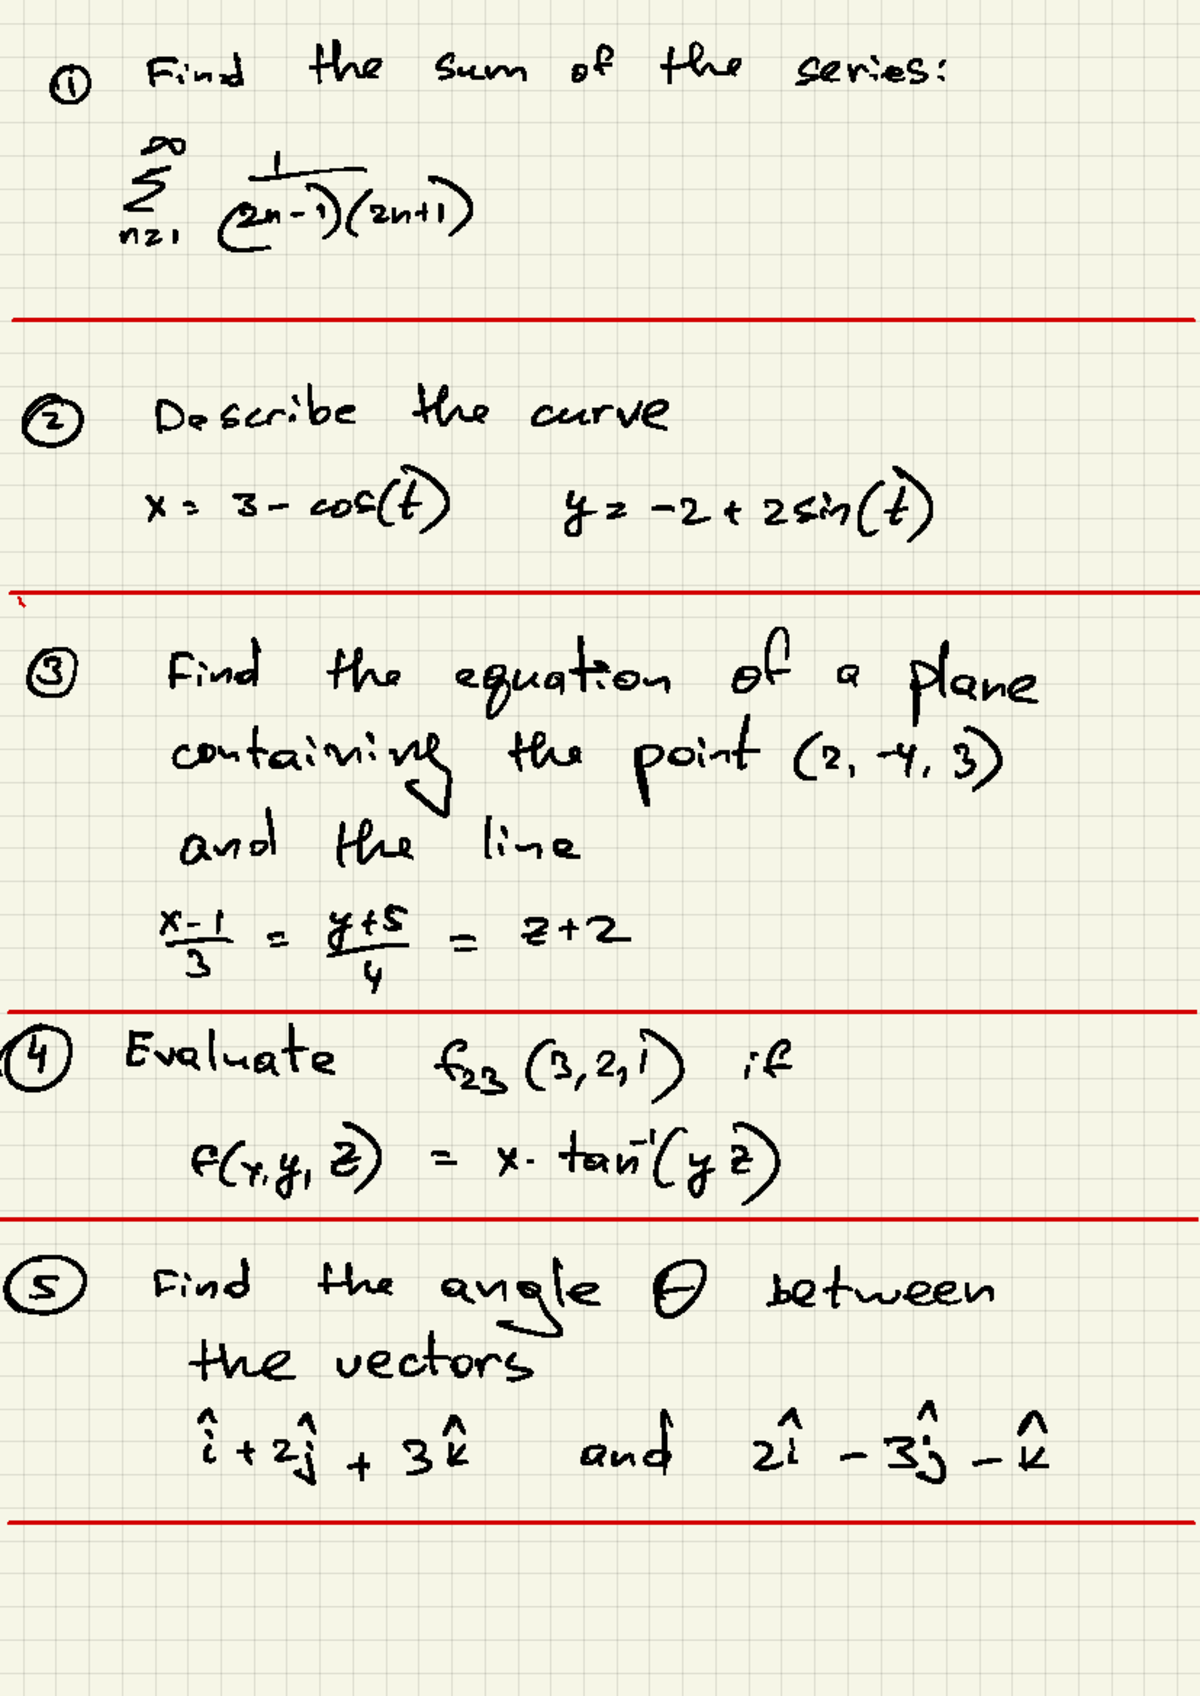 ① Find the sum of the series:
∞
Σ 1/((2n-1)(2n+1))
n=1
② Describe the curve
x = 3 - cos(t) y = -2 + 2sin(t)
③ Find the equation of a plane
containing the point (2, -4, 3)
and the line
(x-1)/3 = (y+5)/4 = z+2
④ Evaluate f₂₃ (3,2,1) if
f(x,y,z) = x· tan⁻¹(yz)
⑤ Find the angle θ between
the vectors
î + 2ĵ + 3k̂ and 2î - 3ĵ - k̂